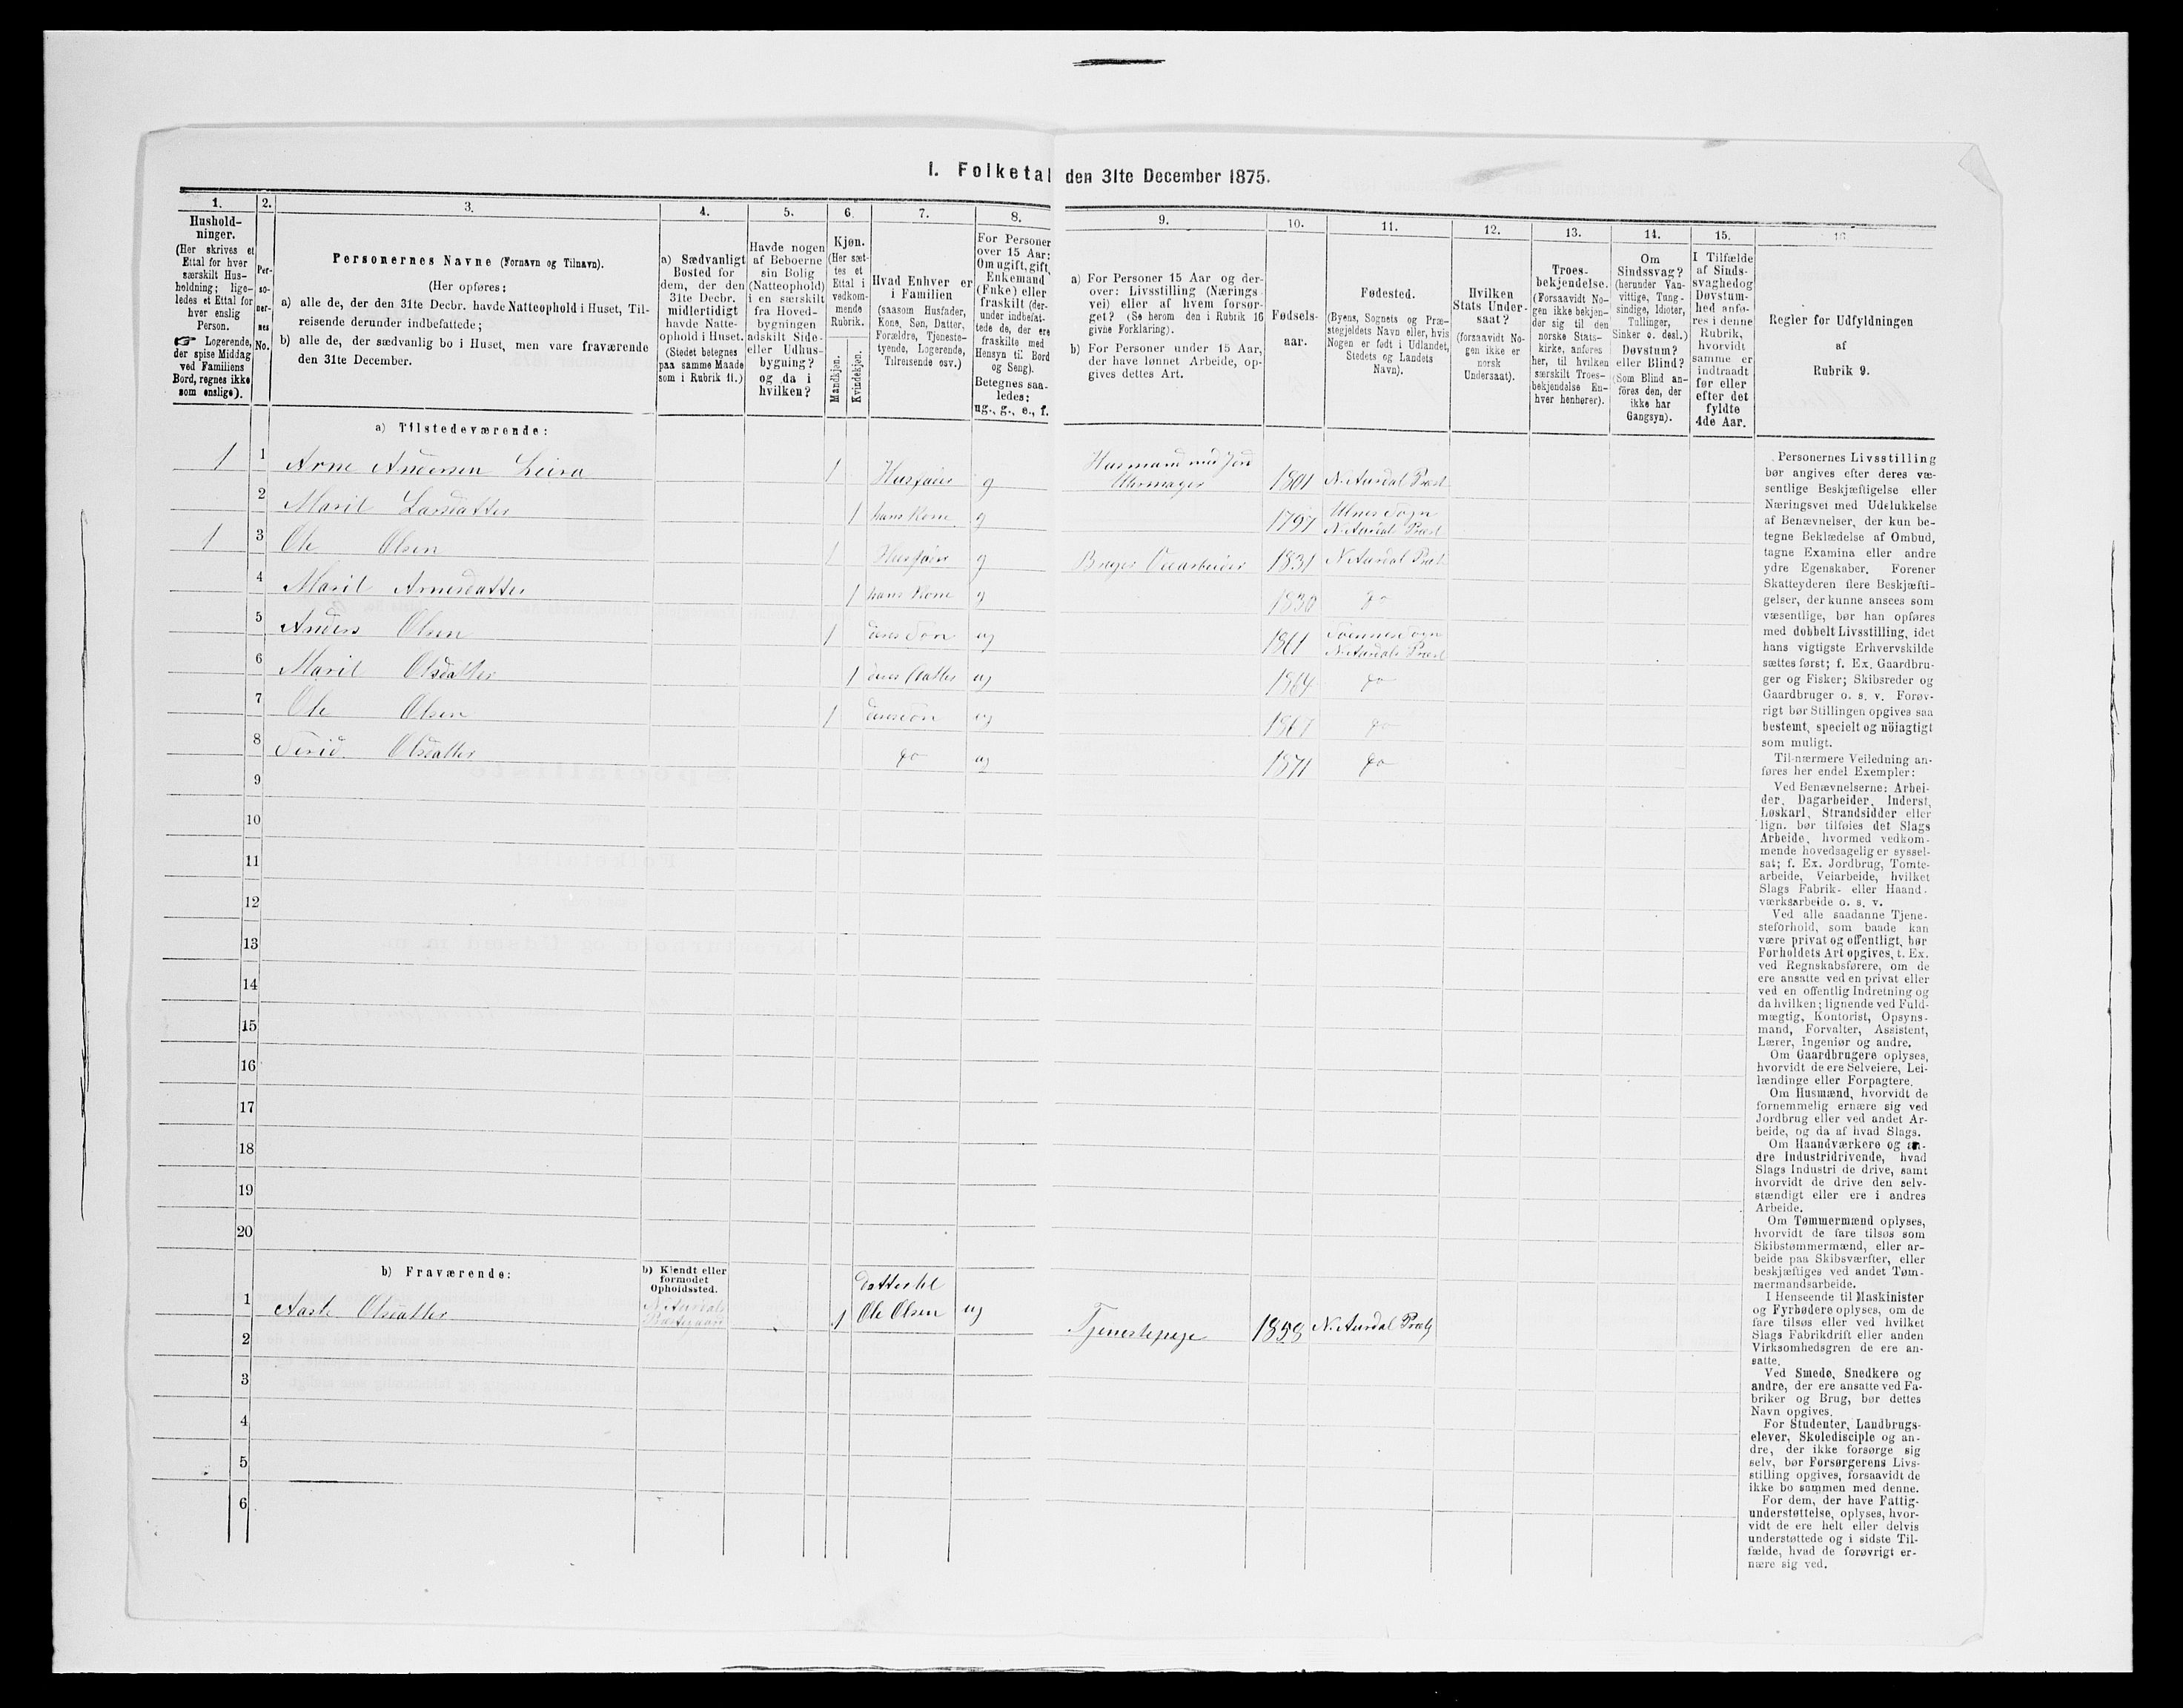 I. Folketal den 31te December 1875.
1.
Hushold-
ninger.
(Her skrives et
Ettal for hver
særskilt Hus-
holdning; lige-
ledes et Ettal for
hver enslig
Person.
☞ Logerende,
der spise Middag
ved Familiens
Bord, regnes ikke
som enslige).
2.
Per-
so-
ner-
nes
No.
3.
Personernes Navne (Fornavn og Tilnavn).
(Her opføres:
a) alle de, der den 31te Decbr. havde Natteophold i Huset, Til-
reisende derunder indbefattede;
b) alle de, der sædvanlig bo i Huset, men vare fraværende
den 31te December.
4.
a) Sædvanligt
Bosted for
dem, der den
31te Decbr.
midlertidigt
havde Natte-
ophold i Huset.
(Stedet betegnes
paa samme Maade
som i Rubrik 11.)
5.
Havde nogen
af Beboerne
sin Bolig
(Natteophold)
i en særskilt
fra Hoved-
bygningen
adskilt Side-
eller Udhus-
bygning?
og da i
hvilken?
6.
Kjøn.
(Her sæt-
tes et
Ettal i
vedkom-
mende
Rubrik.
Mandkjøn.
Kvindekjøn.
7.
Hvad Enhver er
i Familien
(saasom Husfader,
Kone, Søn, Datter,
Forældre, Tjeneste-
tyende, Logerende,
Tilreisende osv.)
8.
For Personer
over 15 Aar:
Om ugift, gift,
Enkemand
(Enke) eller
fraskilt (der-
under indbefat-
tede de, der ere
fraskilte med
Hensyn til Bord
og Seng).
Betegnes saa-
ledes:
ug., g., e., f.
9.
a) For Personer 15 Aar og der-
over: Livsstilling (Nærings-
vei) eller af hvem forsør-
get? (Se herom den i Rubrik 16
givne Forklaring).
b) For Personer under 15 Aar,
der have lønnet Arbeide, op-
gives dettes Art.
10.
Fødsels-
aar.
11.
Fødested.
(Byens, Sognets og Præ-
stegjeldets Navn eller, hvis
Nogen er født i Udlandet,
Stedets og Landets
Navn).
12.
Hvilken
Stats Under-
saat?
(forsaavidt No-
gen ikke er
norsk
Undersaat).
13.
Troes-
bekjendelse.
(Forsaavidt No-
gen ikke bekjen-
der sig til den
norske Stats-
kirke, anføres
her, til hvilken
særskilt Troes-
bekjendelse En-
hver henhører).
14.
Om
Sindssvag?
(herunder Van-
vittige, Tung-
sindige, Idioter,
Tullinger,
Sinker o. desl.)
Døvstum?
eller Blind?
(Som Blind an-
føres den, der
ikke har
Gangsyn).
15.
I Tilfælde
af Sinds-
svaghed og
Døvstum-
hed anfø-
res i denne
Rubrik,
hvorvidt
samme er
indtraadt
før eller
efter det
fyldte
4de Aar.
16
Regler for Udfyldningen
af
Rubrik 9.
a) Tilstedeværende:
1 1 Arne Andersen Leira 1 Husfader g Husmand med Jord
Uhrmager 1801 N. Aurdal Præst
2 Marit Larsdatter 1 hans Kone g 1797 Ulnes Sogn
N. Aurdals Præst
1 3 Ole Olsen 1 Husfader g Bruger Veiarbeider 1831 N. Aurdal Præst
4 Marit Arnesdatter 1 hans Kone g 1830 do
5 Anders Olsen 1 deres Søn ug 1861 Svennes Sogn
N. Aurdals Præst
6 Marit Olsdatter 1 deres Datter ug 1864 do
7 Ole Olsen 1 deres Søn ug 1867 do
8 Olsdatter do ug 1871 do
9
10
11
12
13
14
15
16
17
18
19
20
b) Fraværende:
b) Kjendt eller
formodet
Opholdssted.
1 Aaste Olsdatter N. Aurdals
Præstegaard 1 Datter til
Ole Olsen ug Tjenestepige 1858 N. Aurdal Præstg
2
3
4
5
6
Personernes Livsstilling
bør angives efter deres væ-
sentlige Beskjæftigelse eller
Næringsvei med Udelukkelse
af Benævnelser, der kun be-
tegne Beklædelse af Ombud,
tagne Examina eller andre
ydre Egenskaber. Forener
Skatteyderen flere Beskjæfti-
gelser, der kunne ansees som
væsentlige, bør han opføres
med dobbelt Livsstilling, idet
hans vigtigste Erhvervskilde
sættes først; f. Ex. Gaardbru-
ger og Fisker; Skibsreder og
Gaardbruger o. s. v. Forøv-
rigt bør Stillingen opgives saa
bestemt, specielt og nöiagtigt
som muligt.
Til nærmere Veiledning an-
føres her endel Exempler:
Ved Benævnelserne: Arbei-
der, Dagarbeider, Inderst,
Løskarl, Strandsidder eller
lign. bør tilføies det Slags
Arbeide, hvormed vedkom-
mende hovedsagelig er syssel-
sat; f. Ex. Jordbrug, Tomte-
arbeide, Veiarbeide, hvilket
Slags Fabrik- eller Haand-
værksarbeide o. s. v.
Ved alle saadanne Tjene-
steforhold, som baade kan
være privat og offentligt, bør
Forholdets Art opgives, t. Ex.
ved Regnskabsførere, om de
ere ansatte ved en privat eller
ved en offentlig Indretning og
da hvilken; lignende ved Fuld-
mægtig, Kontorist, Opsyns-
mand, Forvalter, Assistent,
Lærer, Ingeniør og andre.
Om Gaardbrugere oplyses,
hvorvidt de ere Selveiere, Lei-
lændinge eller Forpagtere.
Om Husmænd, hvorvidt de
fornemmelig ernære sig ved
Jordbrug eller ved andet Ar-
beide, og da af hvad Slags.
Om Haandværkere og an-
dre Industridrivende, hvad
Slags Industri de drive, samt
hvorvidt de drive den selv-
stændigt eller ere i andres
Arbeide.
Om Tømmermænd oplyses,
hvorvidt de fare tilsøs som
Skibstømmermænd, eller ar-
beide paa Skibsværfter, eller
beskjæftiges ved andet Tøm-
mermandsarbeide.
I Henseende til Maskinister
og Fyrbødere oplyses, om de
fare tilsøs eller ved hvilket
Slags Fabrikdrift eller anden
Virksomhedsgren de ere an-
satte.
Ved Smede, Snedkere og
andre, der ere ansatte ved Fa-
briker og Brug, bør dettes
Navn opgives.
For Studenter, Landbrugs-
elever, Skoledisciple og an-
dre, der ikke forsørge sig
selv, bør Forsørgerens Livs-
stilling opgives, forsaavidt de
ikke bo sammen med denne.
For dem, der have Fattig-
understøttelse, oplyses, hvor-
vidt de ere helt eller delvis
understøttede og i sidste Til-
fælde, hvad de forøvrigt er-
nære sig ved.